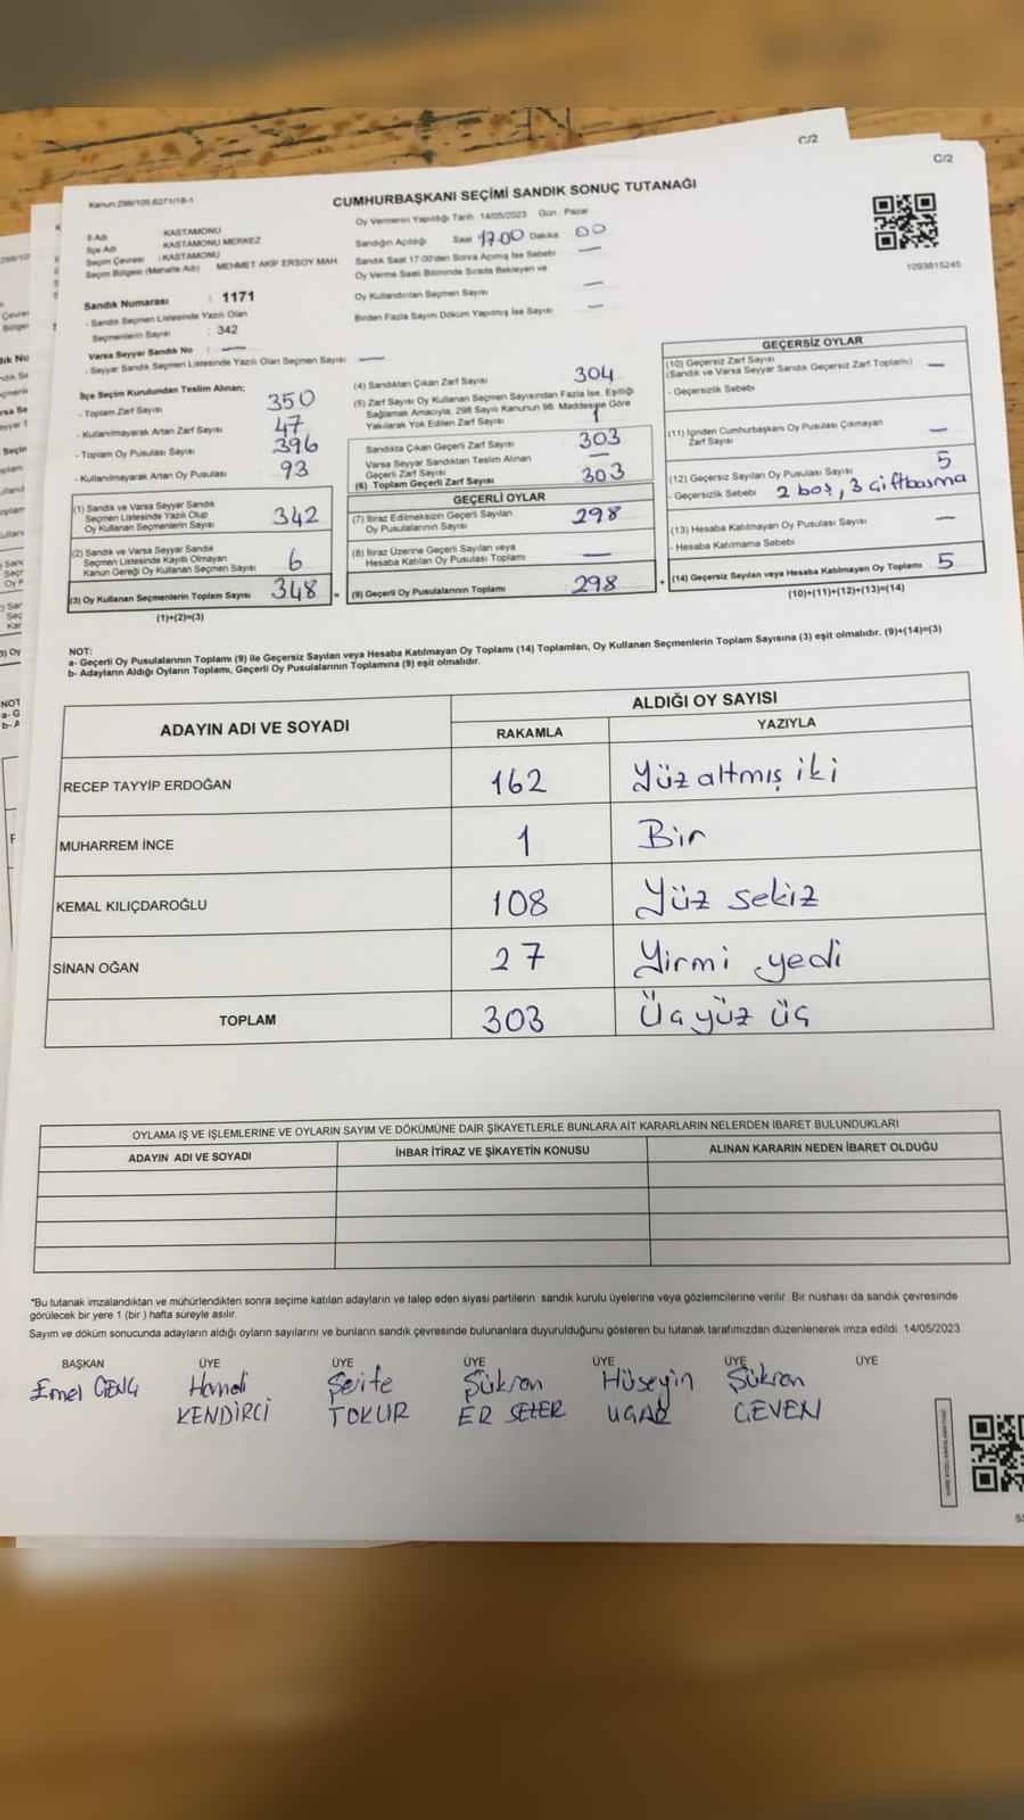 C/2
C/2
Kanun:298/105.6271/18-1
CUMHURBAŞKANI SEÇİMİ SANDIK SONUÇ TUTANAĞI
Oy Vermenin Yapıldığı Tarih 14/05/2023 Gün: Pazar
İl Adı KASTAMONU
İlçe Adı KASTAMONU MERKEZ
Seçim Çevresi : KASTAMONU
Seçim Bölgesi (Mahalle Adı) MEHMET AKİF ERSOY MAH
Sandığın Açıldığı Saat 17.00 Dakika 00
Sandık Saat 17:00'den Sonra Açılmış İse Sebebi —
Oy Verme Saati Bitiminde Sırada Bekleyen ve
Oy Kullandırılan Seçmen Sayısı —
Birden Fazla Sayım Döküm Yapılmış İse Sayısı —
1093815245
Sandık Numarası : 1171
- Sandık Seçmen Listesinde Yazılı Olan
Seçmenlerin Sayısı : 342
Varsa Seyyar Sandık No : —
- Seyyar Sandık Seçmen Listesinde Yazılı Olan Seçmen Sayısı —
İlçe Seçim Kurulundan Teslim Alınan;
- Toplam Zarf Sayısı 350
- Kullanılmayarak Artan Zarf Sayısı 47
- Toplam Oy Pusulası Sayısı 396
- Kullanılmayarak Artan Oy Pusulası 93
(1) Sandık ve Varsa Seyyar Sandık
Seçmen Listesinde Yazılı Olup
Oy Kullanan Seçmenlerin Sayısı 342
(2) Sandık ve Varsa Seyyar Sandık
Seçmen Listesinde Kayıtlı Olmayan
Kanun Gereği Oy Kullanan Seçmen Sayısı 6
(3) Oy Kullanan Seçmenlerin Toplam Sayısı 348
(1)+(2)=(3)
(4) Sandıktan Çıkan Zarf Sayısı 304
(5) Zarf Sayısı Oy Kullanan Seçmen Sayısından Fazla İse, Eşitliği
Sağlamak Amacıyla, 298 Sayılı Kanunun 98. Maddesine Göre
Yakılarak Yok Edilen Zarf Sayısı 1
Sandıkta Çıkan Geçerli Zarf Sayısı 303
Varsa Seyyar Sandıktan Teslim Alınan
Geçerli Zarf Sayısı —
(6) Toplam Geçerli Zarf Sayısı 303
GEÇERLİ OYLAR
(7) İtiraz Edilmeksizin Geçerli Sayılan
Oy Pusulalarının Sayısı 298
(8) İtiraz Üzerine Geçerli Sayılan veya
Hesaba Katılan Oy Pusulası Toplamı —
(9) Geçerli Oy Pusulalarının Toplamı 298
GEÇERSİZ OYLAR
(10) Geçersiz Zarf Sayısı
(Sandık ve Varsa Seyyar Sandık Geçersiz Zarf Toplamı) —
- Geçersizlik Sebebi
(11) İçinden Cumhurbaşkanı Oy Pusulası Çıkmayan
Zarf Sayısı —
(12) Geçersiz Sayılan Oy Pusulası Sayısı 5
- Geçersizlik Sebebi 2 boş, 3 çiftbasma
(13) Hesaba Katılmayan Oy Pusulası Sayısı —
- Hesaba Katılmama Sebebi
(14) Geçersiz Sayılan veya Hesaba Katılmayan Oy Toplamı 5
(10)+(11)+(12)+(13)=(14)
NOT:
a- Geçerli Oy Pusulalarının Toplamı (9) ile Geçersiz Sayılan veya Hesaba Katılmayan Oy Toplamı (14) Toplamları, Oy Kullanan Seçmenlerin Toplam Sayısına (3) eşit olmalıdır. (9)+(14)=(3)
b- Adayların Aldığı Oyların Toplamı, Geçerli Oy Pusulalarının Toplamına (9) eşit olmalıdır.
ADAYIN ADI VE SOYADI
ALDIĞI OY SAYISI
RAKAMLA YAZIYLA
RECEP TAYYİP ERDOĞAN 162 Yüz altmış iki
MUHARREM İNCE 1 Bir
KEMAL KILIÇDAROĞLU 108 Yüz sekiz
SİNAN OĞAN 27 Yirmi yedi
TOPLAM 303 Üçyüz üç
OYLAMA İŞ VE İŞLEMLERİNE VE OYLARIN SAYIM VE DÖKÜMÜNE DAİR ŞİKAYETLERLE BUNLARA AİT KARARLARIN NELERDEN İBARET BULUNDUKLARI
ADAYIN ADI VE SOYADI İHBAR İTİRAZ VE ŞİKAYETİN KONUSU ALINAN KARARIN NEDEN İBARET OLDUĞU
*Bu tutanak imzalandıktan ve mühürlendikten sonra seçime katılan adayların ve talep eden siyasi partilerin sandık kurulu üyelerine veya gözlemcilerine verilir. Bir nüshası da sandık çevresinde
görülecek bir yere 1 (bir) hafta süreyle asılır.
Sayım ve döküm sonucunda adayların aldığı oyların sayılarını ve bunların sandık çevresinde bulunanlara duyurulduğunu gösteren bu tutanak tarafımızdan düzenlenerek imza edildi. 14/05/2023
BAŞKAN ÜYE ÜYE ÜYE ÜYE ÜYE ÜYE
Emel GENÇ Hamdi Şerife Şükran Hüseyin Şükran
KENDİRCİ TOKUR ER SEZER UÇAR GEVEN